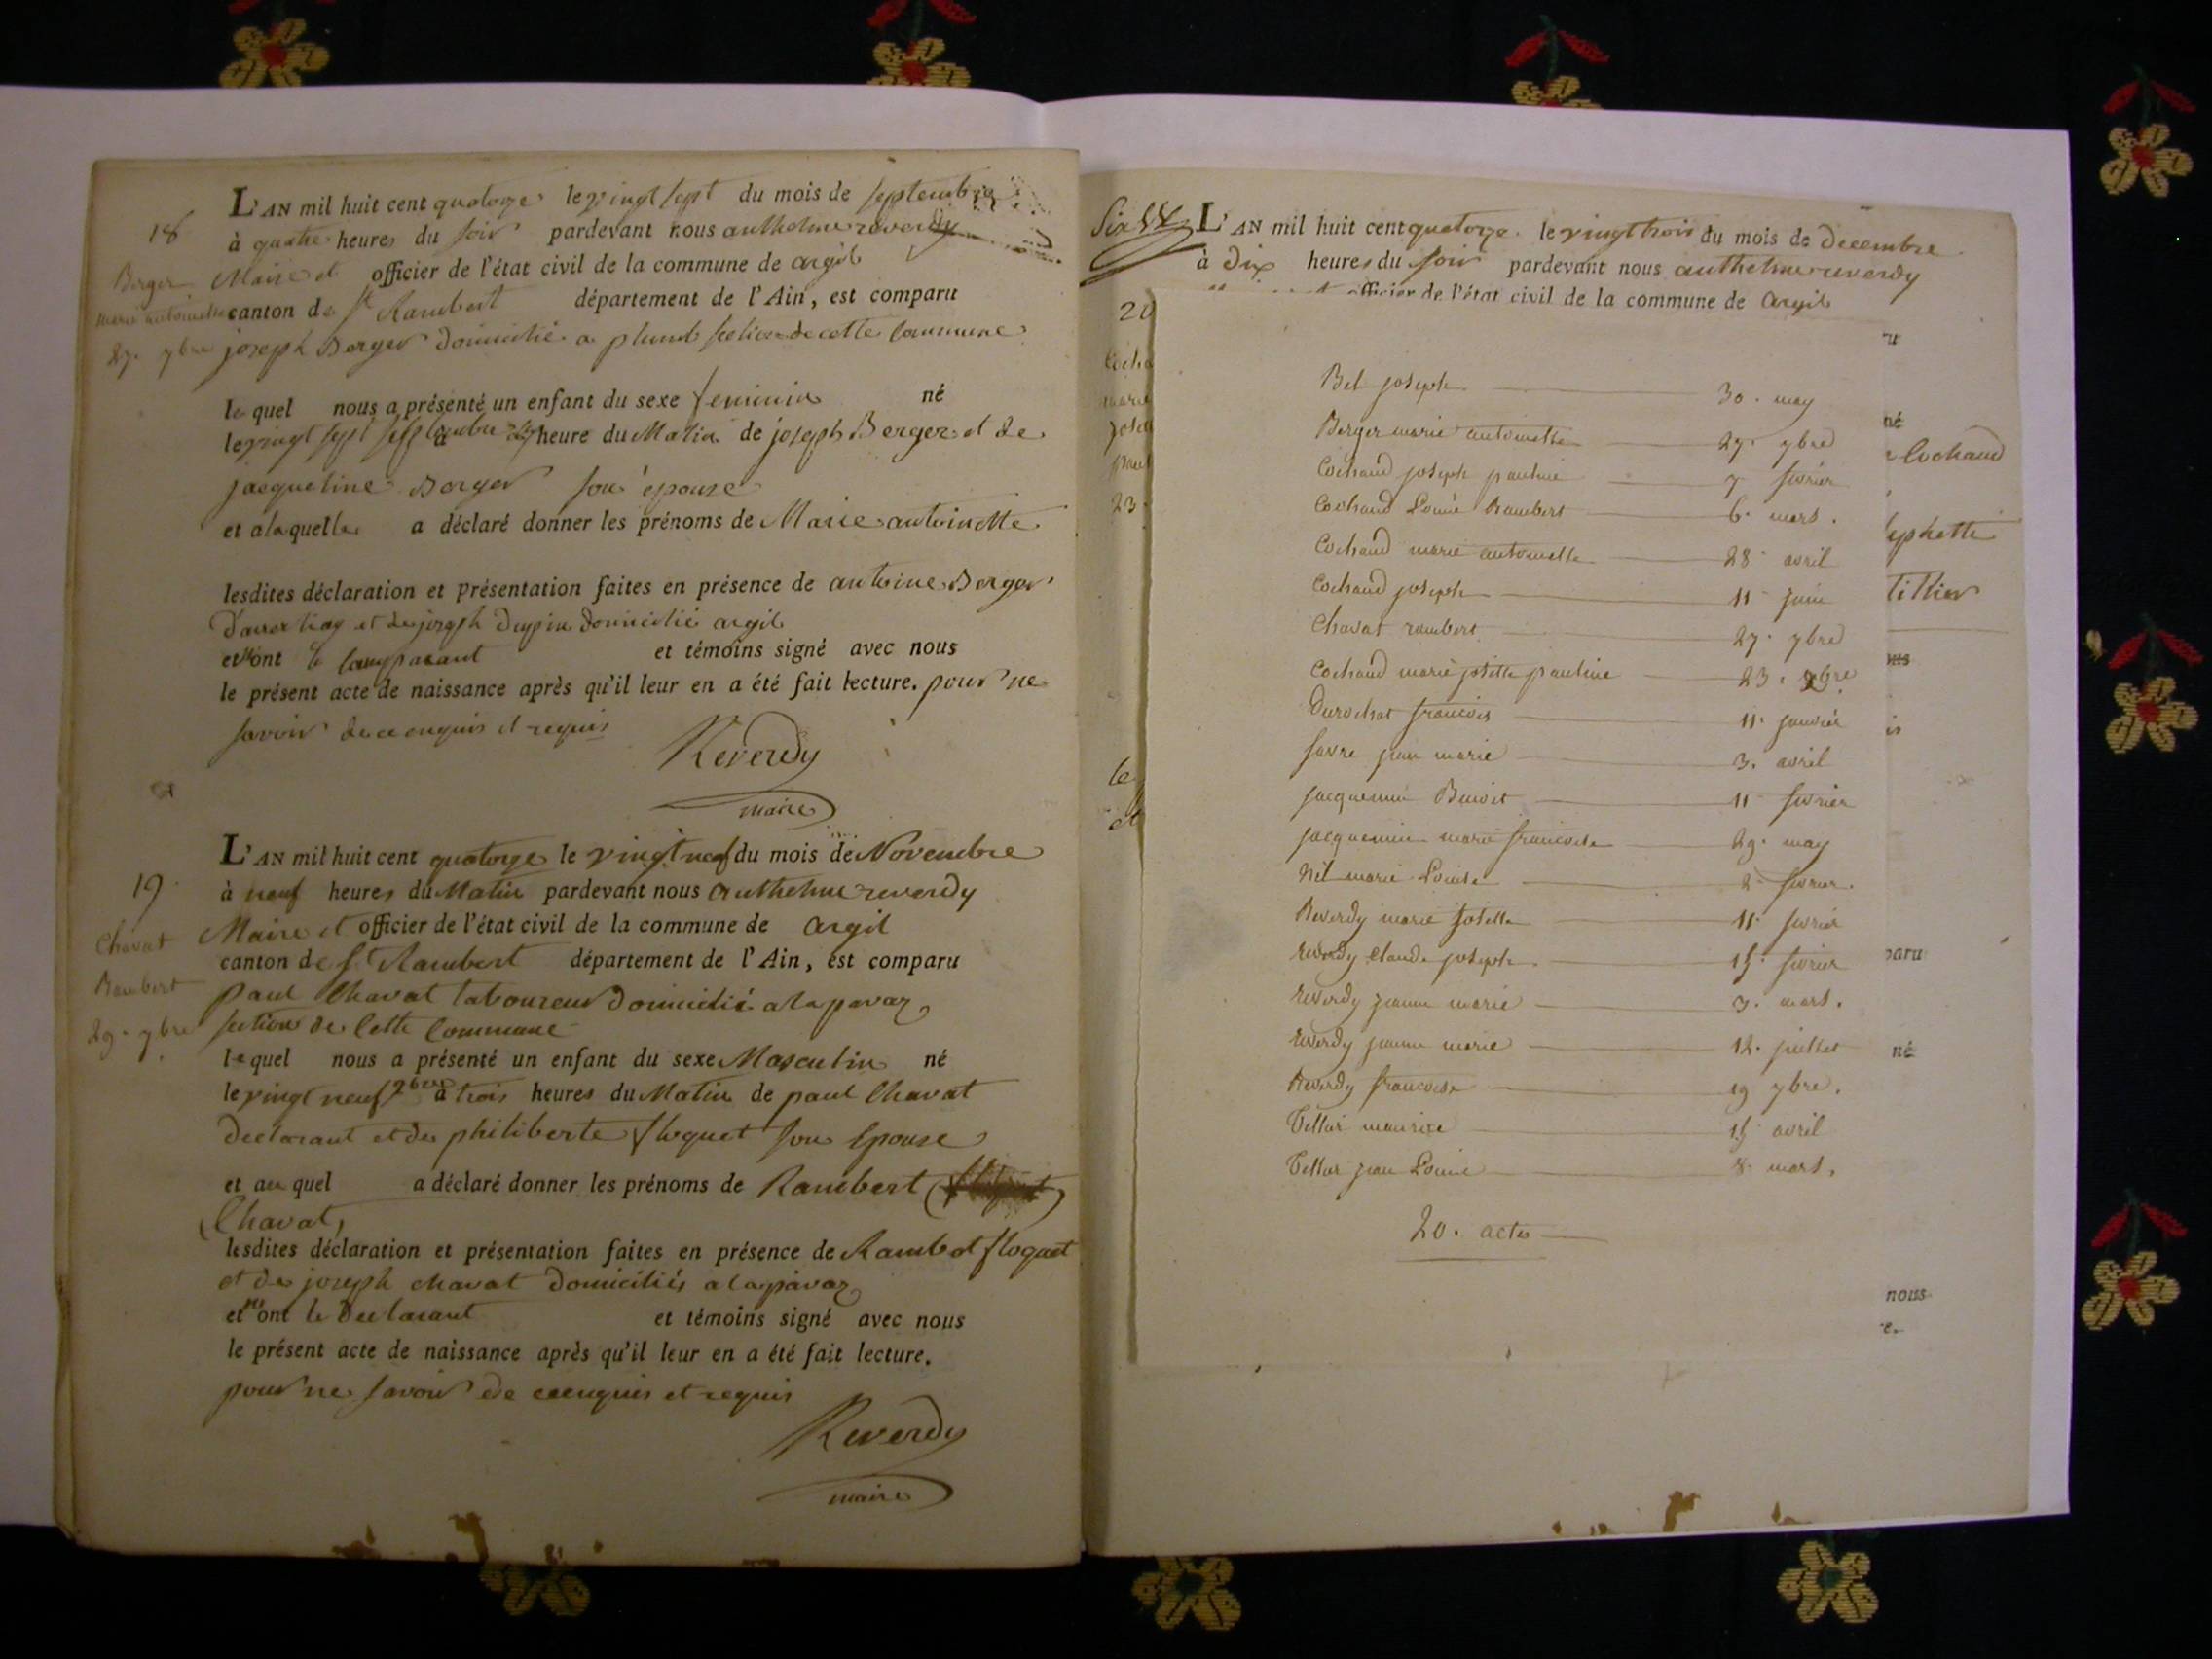 18
Berger
marie antoinette
27. 7bre
L'AN mil huit cent quatorze le vingt sept du mois de septembre
à quatre heures du soir pardevant nous anthelme reverdy
Maire et officier de l'état civil de la commune de argil
canton de St Rambert département de l'Ain, est comparu
joseph Berger domicilié a plomb section de cette commune
le quel nous a présenté un enfant du sexe feminin né
le vingt sept septembre à heure du Matin de joseph Berger et de
jacqueline Berger son épouse
et a laquelle a déclaré donner les prénoms de Marie antoinette
lesdites déclaration et présentation faites en présence de antoine Berger
et de joseph domicilié argil
et n'ont le comparant et témoins signé avec nous
le présent acte de naissance après qu'il leur en a été fait lecture. pour ne
savoir de ce enquis et requis
Reverdy
maire
19.
Chavat
Rambert
29. 9bre
L'AN mil huit cent quatorze le vingt neuf du mois de Novembre
à neuf heures du Matin pardevant nous anthelme reverdy
Maire et officier de l'état civil de la commune de argil
canton de St Rambert département de l'Ain, est comparu
paul Chavat laboureur domicilié a la pavaz
section de Cette Commune
le quel nous a présenté un enfant du sexe Masculin né
le vingt neuf 9bre à trois heures du Matin de paul Chavat
declarant et de philiberte floquet son Epouse
et au quel a déclaré donner les prénoms de Rambert
Chavat,
lesdites déclaration et présentation faites en présence de Rambert floquet
et de joseph chavat domiciliés a la pavaz
et n'ont le Declarant et témoins signé avec nous
le présent acte de naissance après qu'il leur en a été fait lecture.
pour ne savoir de ce enquis et requis
Reverdy
maire
Six
L'AN mil huit cent quatorze le vingt trois du mois de Decembre
à dix heures du soir pardevant nous anthelme reverdy
officier de l'état civil de la commune de argil
20
Cocha
marie
jose
paul
23
le
et
Bel joseph 30. may
Berger marie antoinette 27. 7bre
Cochaud joseph pauline 7 fevrier
Cochaud Louis Rambert 6. mars.
Cochaud marie antoinette 28 avril
Cochaud joseph 11 juin
Chavat rambert 29. 9bre
Cochaud marie josette pauline 23. xbre
Durochat francois 11. janvier
favre jean marie 3. avril
jacquemin Benoit 11 fevrier
jacquemin marie francoise 29. may
marie Louise 2 fevrier.
Reverdy marie josette 11. fevrier
reverdy Claude joseph 15. fevrier
reverdy jeanne marie 3. mars.
reverdy jeanne marie 12. juillet
Reverdy francoise 19 7bre.
maurice 15 avril
jean Louis 8. mars.
20. actes
né
Cochaud
ephette
Tillier
paru
né
nous
e.